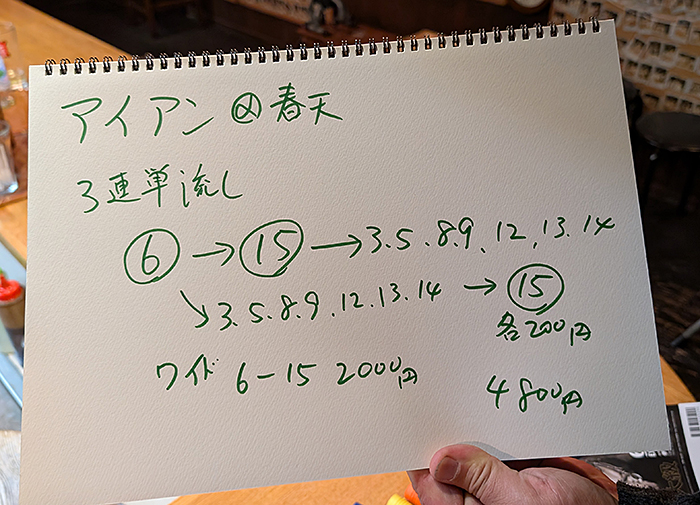 アイアン〆春天
3連単流し
⑥→⑮→3.5.8.9.12.13.14
↘3.5.8.9.12.13.14→⑮
各200円
ワイド 6-15 2000円
4800円